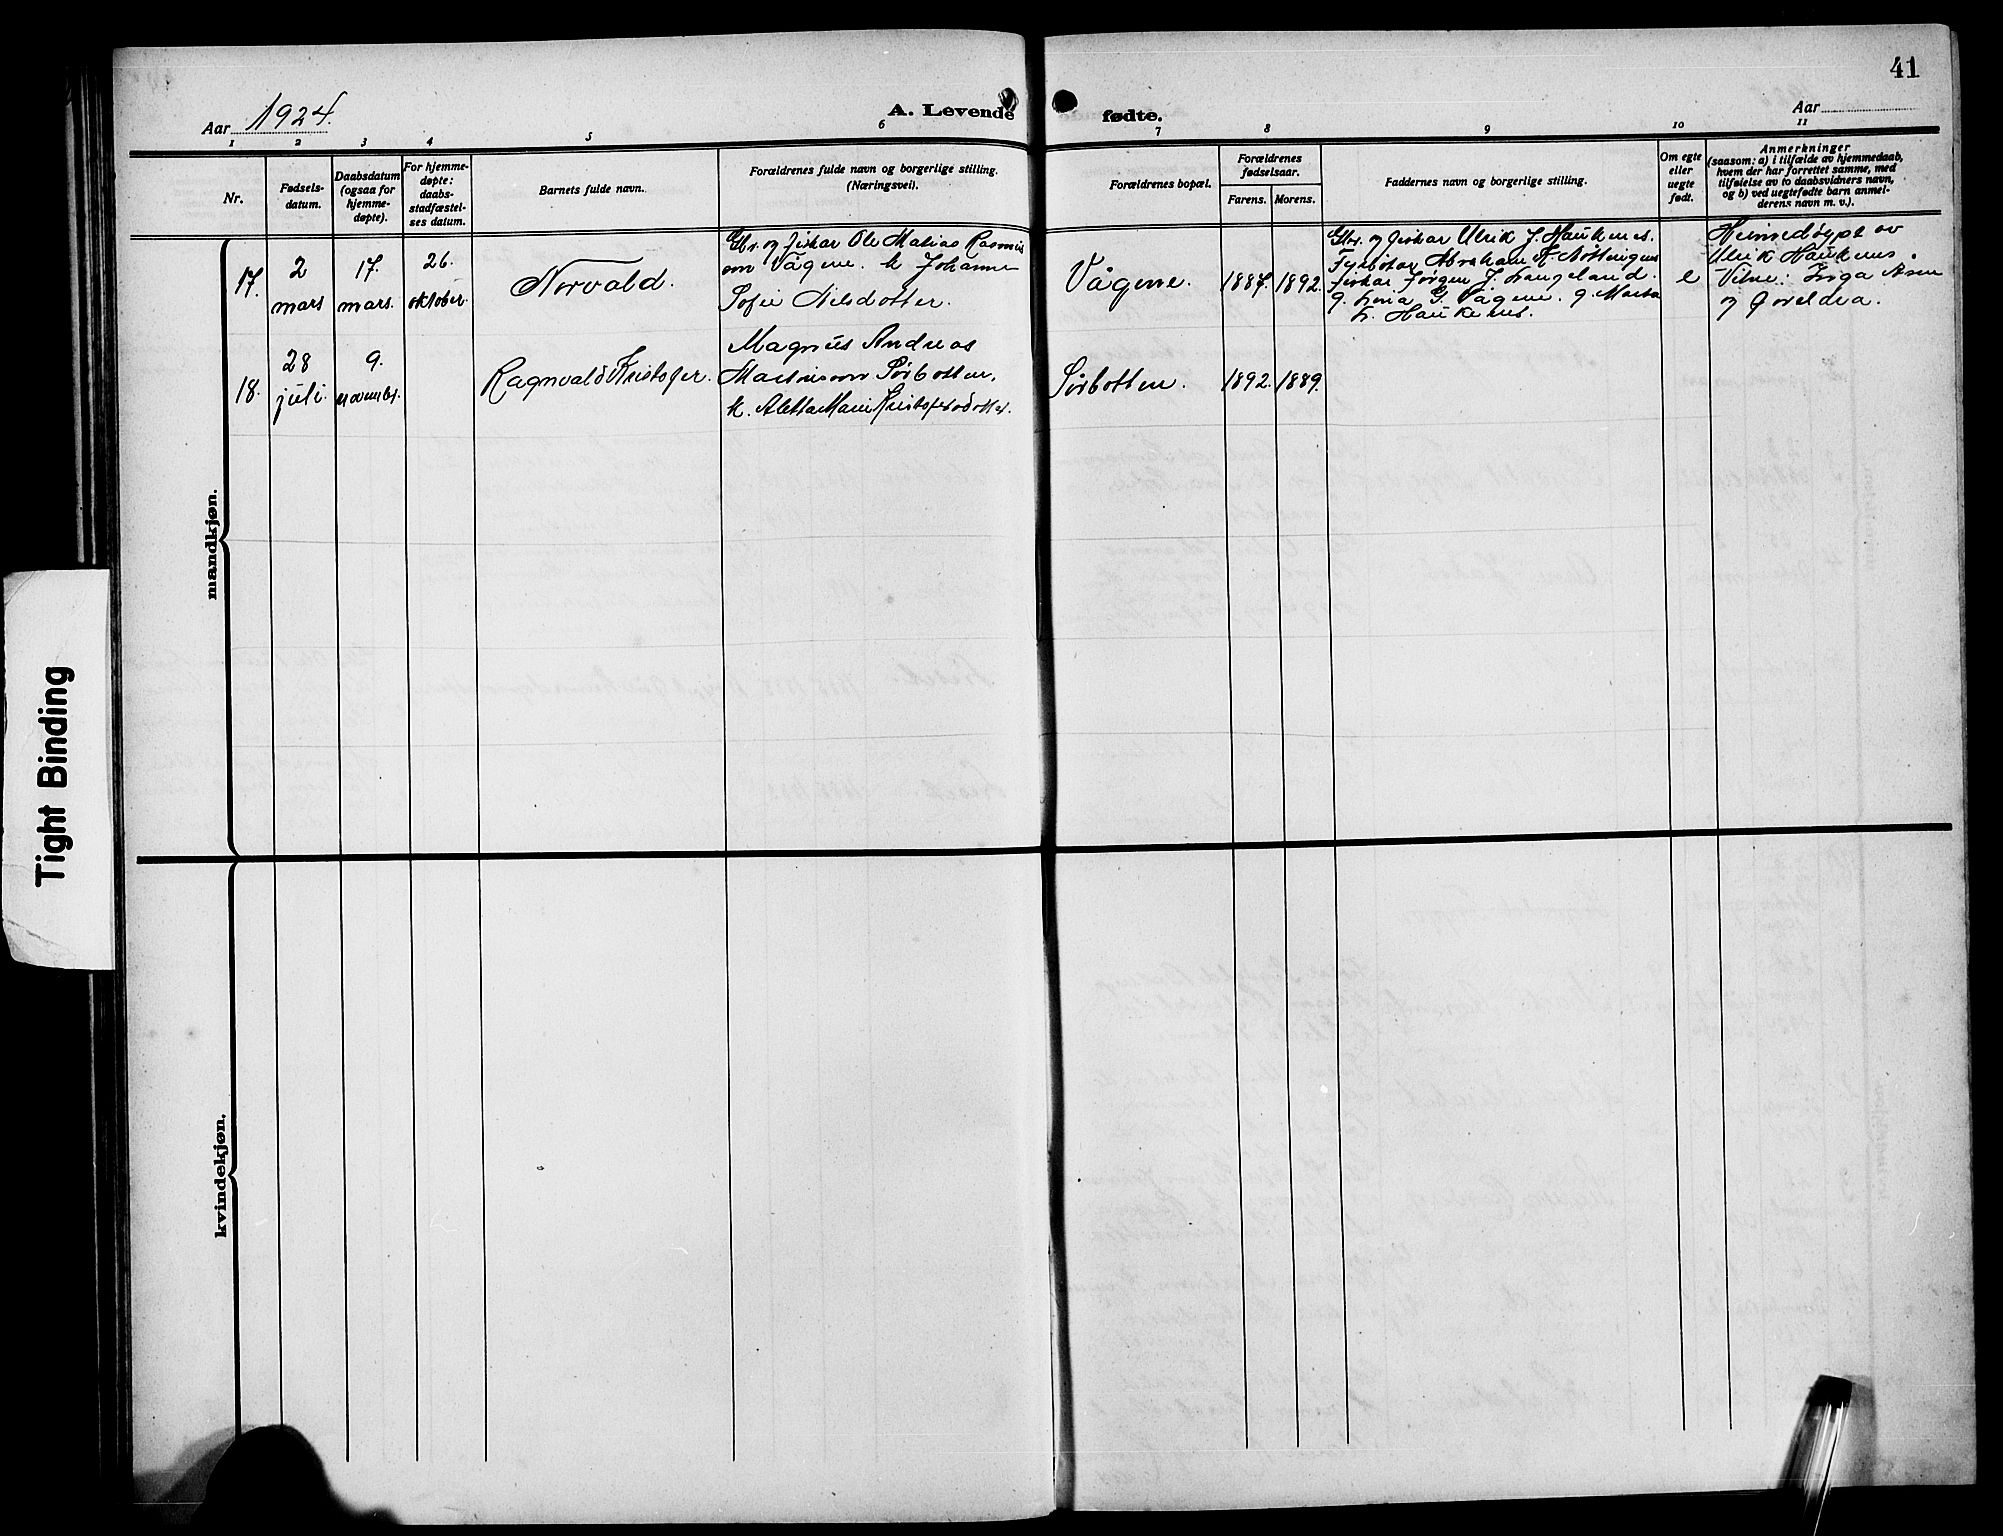 41
Aar 1924.
A. Levende fødte.
Aar
1 2 3 4 5 6 7 8 9 10 11
Nr.
Fødsels-
datum.
Daabsdatum
(ogsaa for
hjemme-
døpte).
For hjemme-
døpte:
daabs-
stadfæstel-
ses datum.
Barnets fulde navn.
Forældrenes fulde navn og borgerlige stilling.
(Næringsvei).
Forældrenes bopæl.
Forældrenes
fødselsaar.
Farens. Morens.
Faddernes navn og borgerlige stilling.
Om egte
eller
uegte
født.
Anmerkninger
(saasom: a) i tilfælde av hjemmedaab,
hvem der har forrettet samme, med
tilføielse av to daabsvidners navn,
og b) ved uegtefødte barn anmel-
derens navn m. v.).
mandkjøn.
17.
2
mars
17.
mars.
26.
oktober
Norvald.
Gbr. og fiskar Ole Matias Rasmus
son Vågene. k Johanne
Sofie Nilsdotter.
Vågene.
1887. 1892.
Gbr. og fiskar Ulrik J. Haukenes.
Fyrbøtar Abraham
fiskar Jørgen J. Langeland.
g. Lina G. Vågene. g. Marta
L. Haukenes.
e
Heimedøypt av
Ulrik Haukenes.
Vitne: Inga Åsen
og foreldra.
18.
28
juli.
9.
novembr.
Ragnvald Kristofer.
Magnus Andreas
Martinsson Sørbotten,
k. Aletta Marie Kristofersdotter.
Sørbotten.
1892. 1889.
kvindekjøn.
Tight Binding